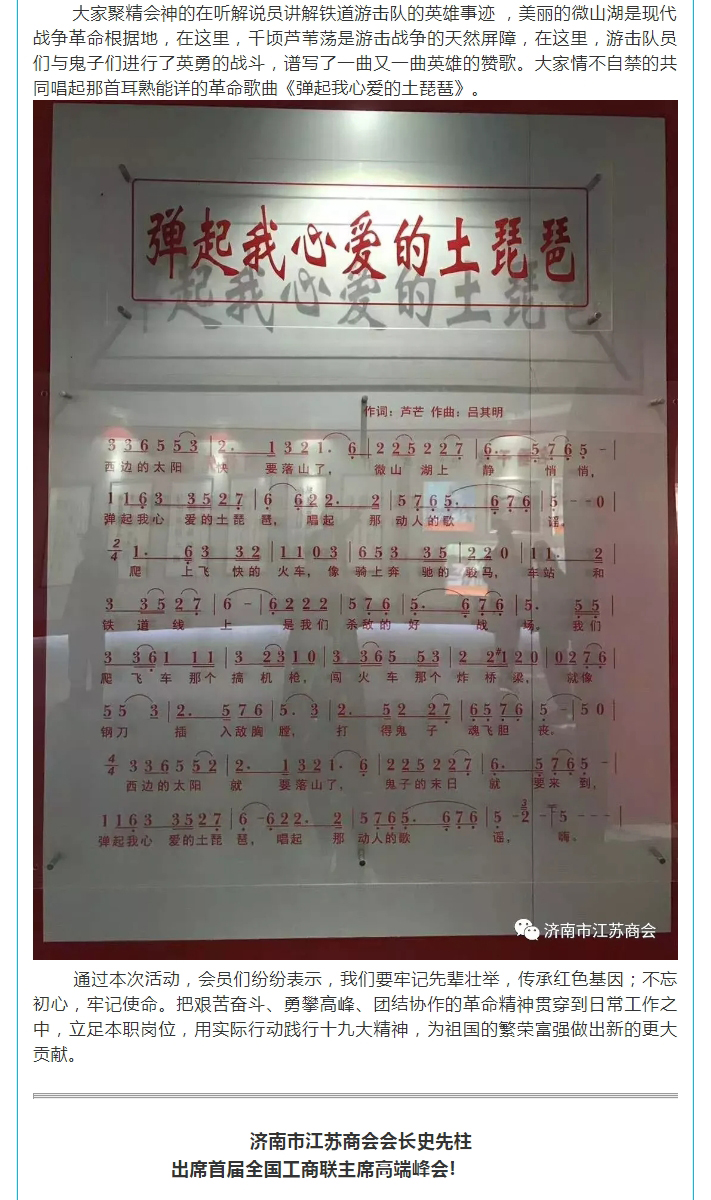 大家聚精会神的在听解说员讲解铁道游击队的英雄事迹 ，美丽的微山湖是现代
战争革命根据地，在这里，千顷芦苇荡是游击战争的天然屏障，在这里，游击队员
们与鬼子们进行了英勇的战斗，谱写了一曲又一曲英雄的赞歌。大家情不自禁的共
同唱起那首耳熟能详的革命歌曲《弹起我心爱的土琵琶》。
弹起我心爱的土琵琶
作词：芦芒 作曲：吕其明
3 3 6 5 5 5 3 | 2. 1 3 2 1. 6 | 2 2 5 2 2 7 | 6. 5 7 6 5 - |
西边的太阳 快 要落山了， 微山 湖上 静 悄悄，
1 1 6 3 3 5 2 7 | 6 6 2 2 2. 2 | 5 7 6 5. 6 7 6 | 5 - - 0 |
弹起我心 爱的土琵 琶， 唱起 那 动人的歌 谣。
2/4 1. 6 3 3 2 | 1 1 0 3 | 6 5 3 3 5 | 2 2 0 | 1 1. 2 |
爬 上飞 快的 火车，像 骑上奔 驰的 骏马， 车站 和
3 3 5 2 7 | 6 - | 6 2 2 2 | 5 7 6 | 5. 6 7 6 | 5. 5 5 |
铁 道 线 上 是我们 杀敌的 好 战 场。 我们
3 3 6 1 1 1 | 3 2 3 1 0 | 3 3 6 5 5 3 | 2 2 #1 2 0 | 0 2 7 6 |
爬 飞 车 那个 搞 机 枪， 闯 火 车 那个 炸 桥 梁， 就像
5 5 3 | 2. 5 7 6 | 5. 3 | 2. 5 2 2 7 | 6 5 7 6 | 5 - | 5 0 |
钢刀 插 入敌胸 膛， 打 得鬼 子 魂飞胆 丧。
4/4 3 3 6 5 5 2 | 2. 1 3 2 1. 6 | 2 2 5 2 2 7 | 6. 5 7 6 5 - |
西边的太阳 就 要落山了， 鬼子的末日 就 要来 到，
1 1 6 3 3 5 2 7 | 6 - 6 2 2. 2 | 5 7 6 5. 6 7 6 | 5 - 3 2 - | 5 - - - |
弹起我心 爱的土琵 琶， 唱起 那 动人的歌 谣， 嗨。
济南市江苏商会
通过本次活动，会员们纷纷表示，我们要牢记先辈壮举，传承红色基因；不忘
初心，牢记使命。把艰苦奋斗、勇攀高峰、团结协作的革命精神贯穿到日常工作之
中，立足本职岗位，用实际行动践行十九大精神，为祖国的繁荣富强做出新的更大
贡献。
济南市江苏商会会长史先柱
出席首届全国工商联主席高端峰会!